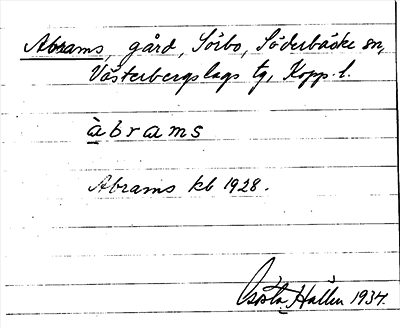 Abrams, gård, Sörbo, Söderbärke sn,
Västerbergslags tg, Kopp. l.
àbrams
Abrams kb 1928.
Gösta Hallén 1934.